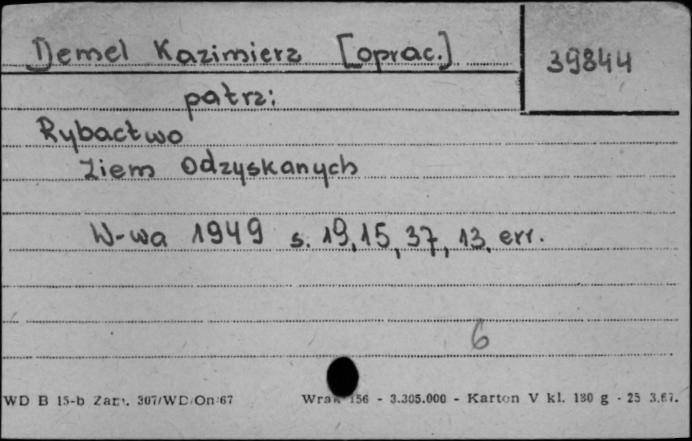 Demel Kazimierz [oprac.]
39844
patrz:
Rybactwo
Ziem Odzyskanych
W-wa 1949 s. 19, 15, 37, 13, err.
6
WD B 15-b Zam. 307/WD/On/67 156 - 3.305.000 - Karton V kl. 180 g - 25 3.67.